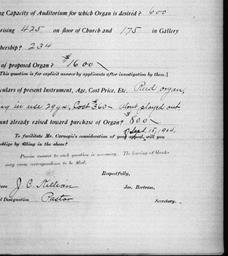 ng Capacity of Auditorium for which Organ is desired? 600
rising 425 on floor of Church and 175 in Gallery
bership? 234
of proposed Organ? $1600
This question is for explicit answer by applicants after investigation by them.]
culars of present Instrument, Age, Cost Price, Etc. Reed organ,
in use 29 yrs, Cost $60 about played out
nt already raised toward purchase of Organ? $800
Sept. 15, 1904.
To facilitate Mr. Carnegie's consideration of your appeal, will you
oblige by filling in the above?
Please answer to each question is necessary. The leaving of blanks
may cause correspondence to be filed.
Respectfully,
J. C. Killian Jas. Bertram,
l Designation Pastor Secretary.